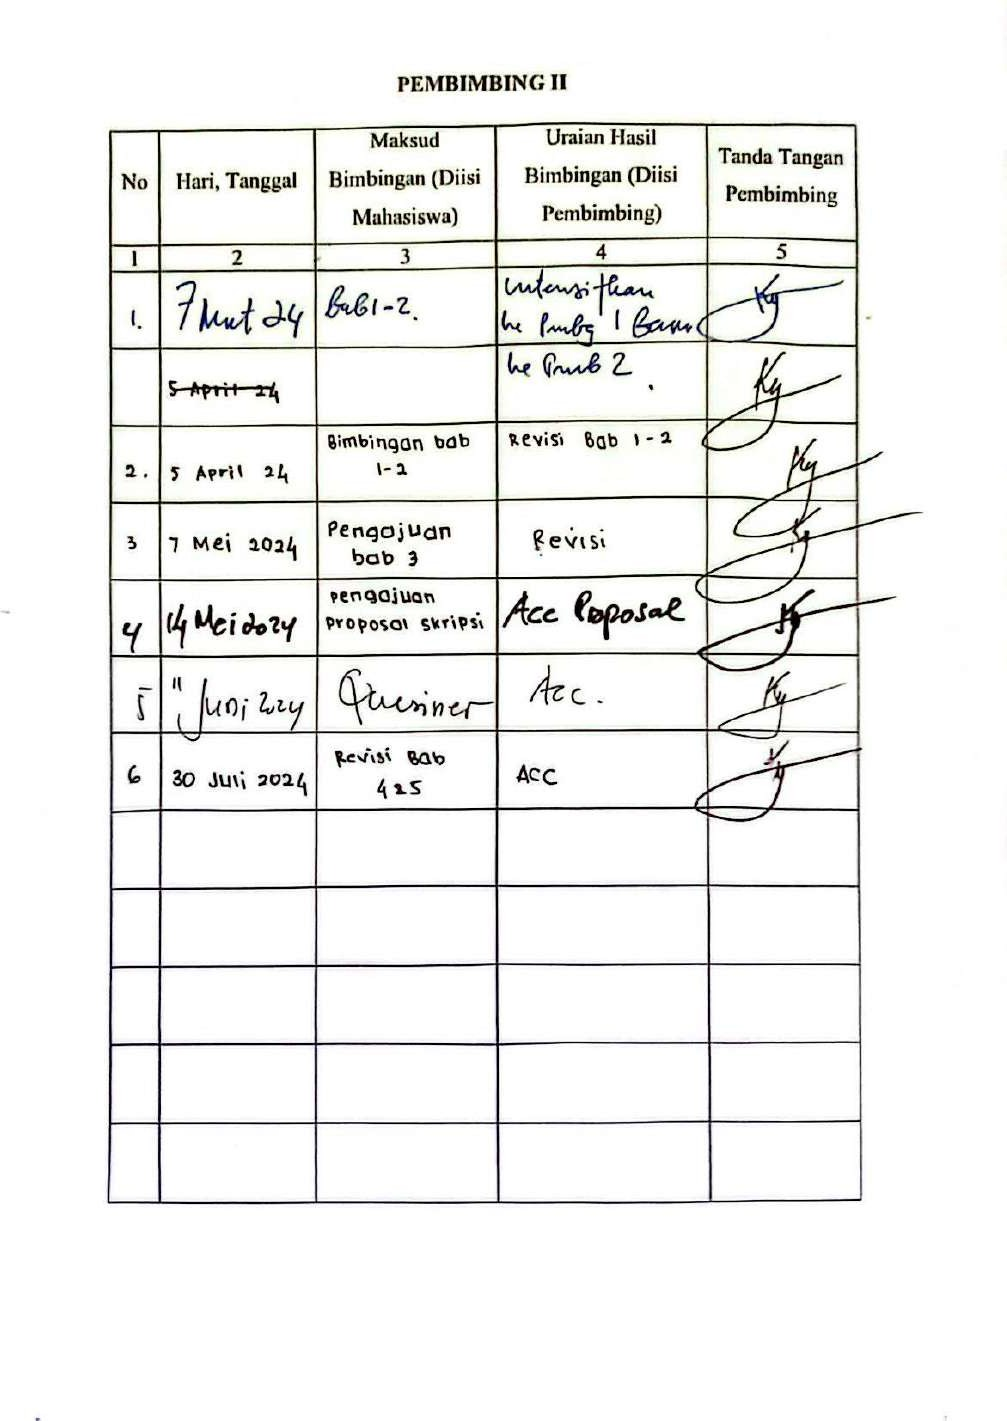 PEMBIMBING II
No
Hari, Tanggal
Maksud
Bimbingan (Diisi
Mahasiswa)
Uraian Hasil
Bimbingan (Diisi
Pembimbing)
Tanda Tangan
Pembimbing
1 2 3 4 5
1.
7 24
Bab 1-2.
Intensifkan
ke 1
ke 2
5 April 24
2.
5 April 24
Bimbingan bab
1-2
Revisi Bab 1-2
3
7 Mei 2024
Pengajuan
bab 3
Revisi
4
14 Mei 2024
Pengajuan
proposal skripsi
Acc Proposal
5
11 Juni 2024
Acc.
6
30 Juli 2024
Revisi Bab
4 & 5
ACC